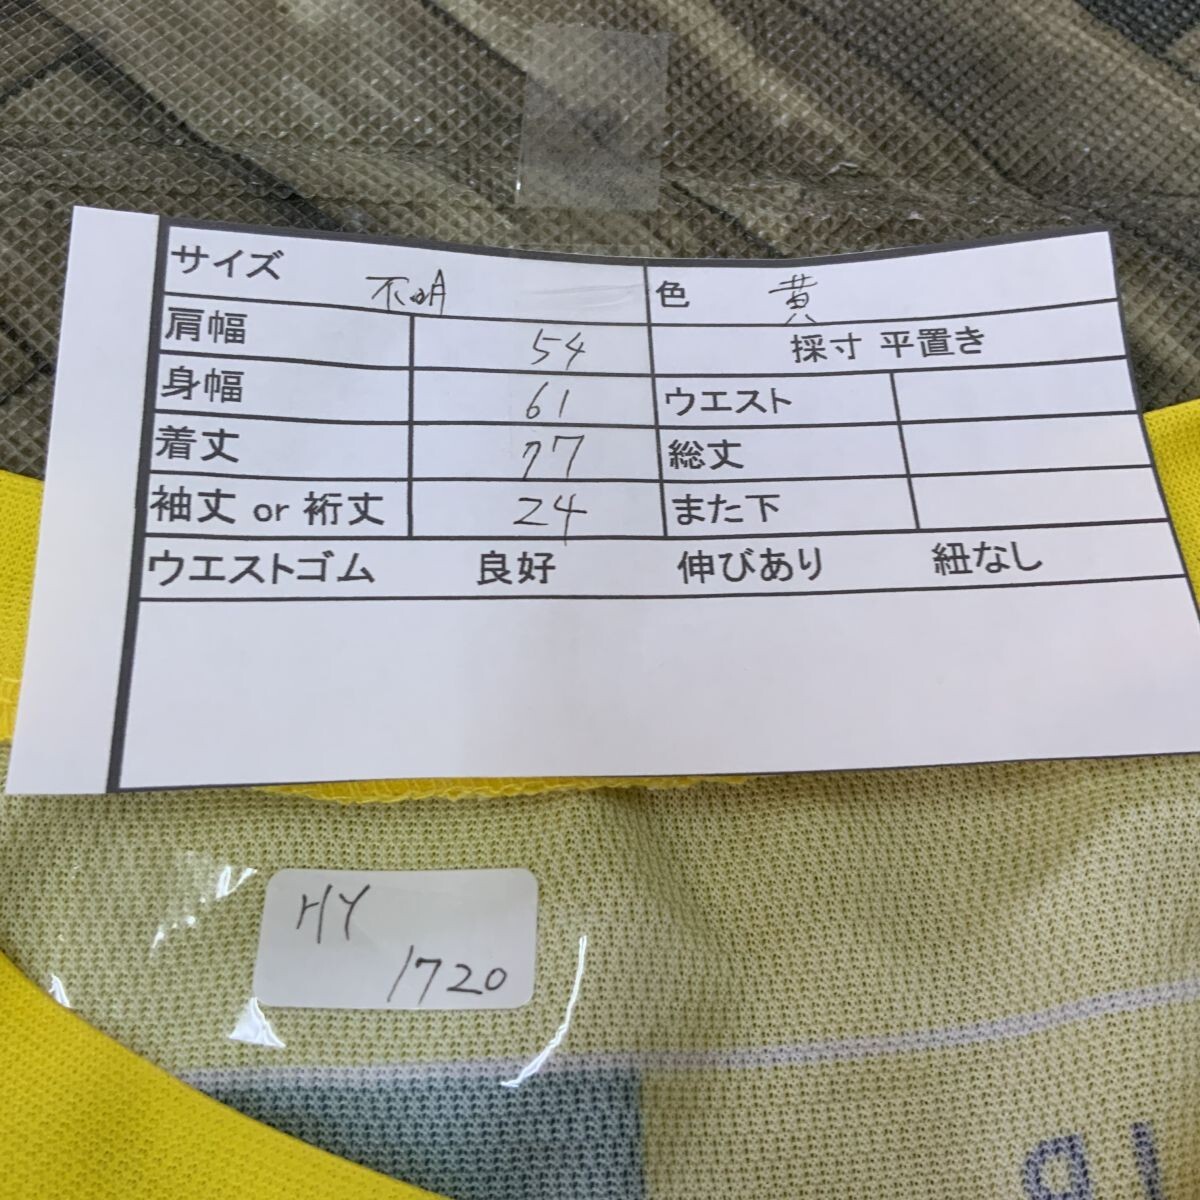 サイズ 不明 色 黄
肩幅 54 採寸 平置き
身幅 61 ウエスト
着丈 77 総丈
袖丈 or 裄丈 24 また下
ウエストゴム 良好 伸びあり 紐なし
HY
1720